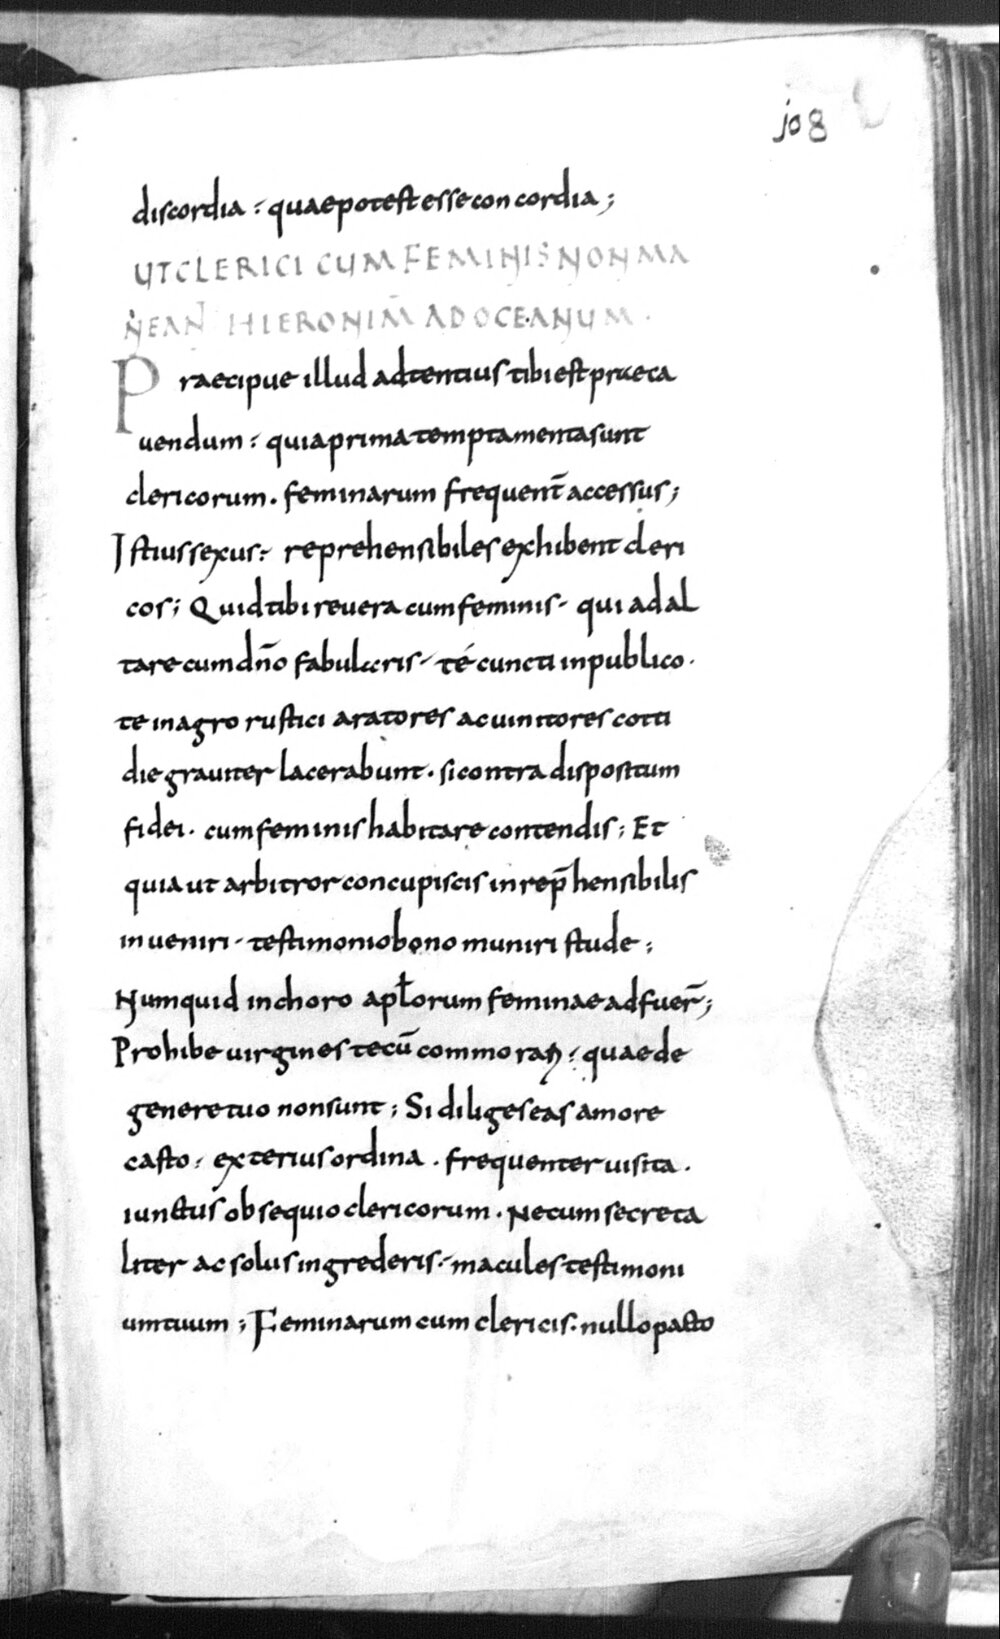 108
discordia : quae potest esse concordia ;
UT CLERICI CUM FEMINIS NON MA
NEAN HIERONIM̄ AD OCEANUM .
Praecipue illud adtentius tibi est praeca
uendum : quia prima temptamenta sunt
clericorum . feminarum frequent̄ accessus ;
Istius sexus : reprehensibiles exhibent cleri
cos ; Quid tibi reuera cum feminis · qui ad al
tare cum dn̄o fabularis · té cuncti in publico ·
te in agro rustici aratores ac uinitores cotti
die grauiter lacerabunt · si contra dispositum
fidei · cum feminis habitare contendis ; Et
quia ut arbitror concupiscis inrep̄hensibilis
inueniri · testimonio bono muniri stude ;
Numquid in choro apl̄orum feminae adfuer̄ ;
Prohibe uirgines tecū commoraꝝ : quae de
genere tuo non sunt ; Si diliges eas amore
casto · exterius ordina . frequenter uisita .
iunctus obsequio clericorum . Ne cum secreta
liter ac solus ingrederis · macules testimoni
um tuum ; Feminarum cum clericis : nullo pacto